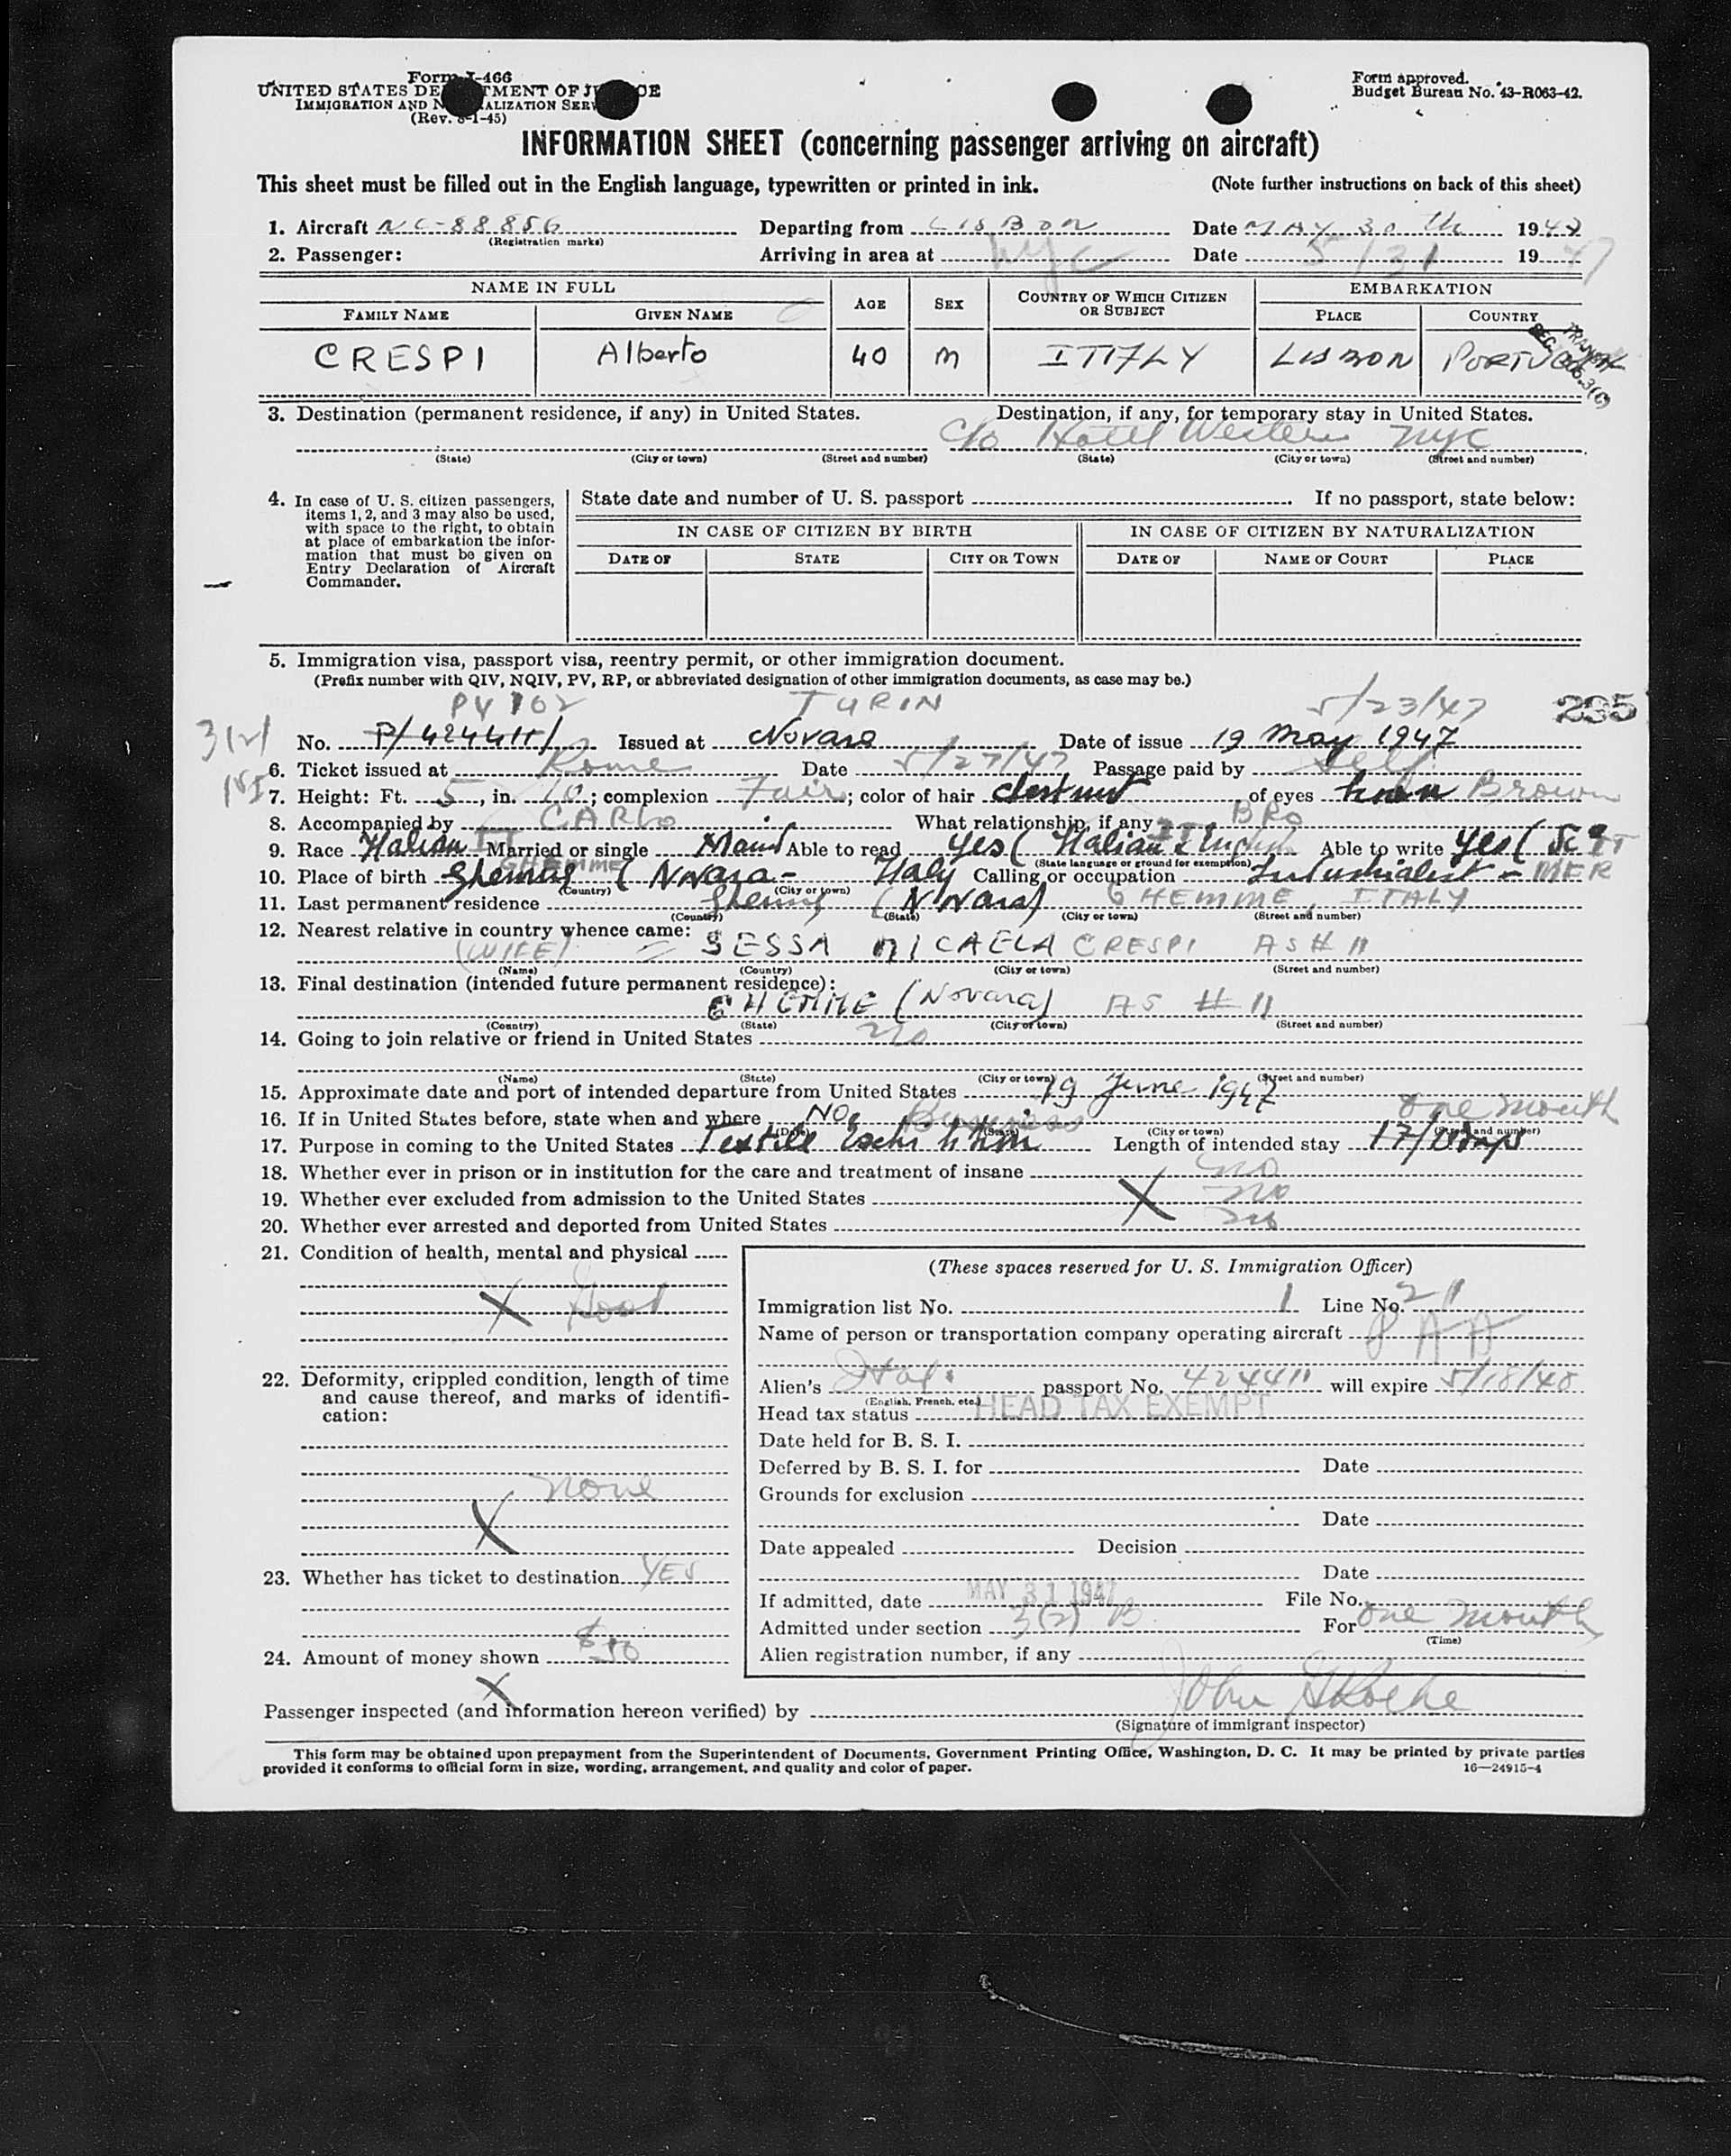 Form I-466
UNITED STATES DEPARTMENT OF JUSTICE
IMMIGRATION AND NATURALIZATION SERVICE
(Rev. 8-1-45)
Form approved.
Budget Bureau No. 43-R063-42.
INFORMATION SHEET (concerning passenger arriving on aircraft)
This sheet must be filled out in the English language, typewritten or printed in ink. (Note further instructions on back of this sheet)
1. Aircraft NC-88856 Departing from LISBON Date MAY 30 th 1947
(Registration marks)
2. Passenger: Arriving in area at nyc Date 5/31 1947
NAME IN FULL AGE SEX COUNTRY OF WHICH CITIZEN OR SUBJECT EMBARKATION
FAMILY NAME GIVEN NAME PLACE COUNTRY
CRESPI Alberto 40 M ITALY LISBON PORTUGAL
TRANSIT
SEC. 3(c)
3. Destination (permanent residence, if any) in United States. Destination, if any, for temporary stay in United States.
c/o Hotel Western nyc
(State) (City or town) (Street and number) (State) (City or town) (Street and number)
4. In case of U. S. citizen passengers, items 1, 2, and 3 may also be used, with space to the right, to obtain at place of embarkation the information that must be given on Entry Declaration of Aircraft Commander.
State date and number of U. S. passport If no passport, state below:
IN CASE OF CITIZEN BY BIRTH IN CASE OF CITIZEN BY NATURALIZATION
DATE OF STATE CITY OR TOWN DATE OF NAME OF COURT PLACE
5. Immigration visa, passport visa, reentry permit, or other immigration document.
(Prefix number with QIV, NQIV, PV, RP, or abbreviated designation of other immigration documents, as case may be.)
PV 702 TURIN 5/23/47 235
3(2)
No. P/424411/ Issued at Novara Date of issue 19 May 1947
6. Ticket issued at Rome Date 5/27/47 Passage paid by Self
7. Height: Ft. 5, in. 10; complexion Fair; color of hair chestnut of eyes brown Brown
8. Accompanied by CARLO What relationship, if any BRO
9. Race Italian IT Married or single Married Able to read yes (Italian & English Able to write yes (
(State language or ground for exemption)
GHEMME
10. Place of birth Ghemme (Novara - Italy Calling or occupation Industrialist - MER
(Country) (City or town)
11. Last permanent residence Ghemme (Novara) GHEMME, ITALY
(Country) (State) (City or town) (Street and number)
12. Nearest relative in country whence came:
(WIFE) = SESSA MICAELA CRESPI AS # 11
(Name) (Country) (City or town) (Street and number)
13. Final destination (intended future permanent residence):
GHEMME (Novara) AS # 11
(Country) (State) (City or town) (Street and number)
14. Going to join relative or friend in United States no
(Name) (State) (City or town) (Street and number)
15. Approximate date and port of intended departure from United States 19 June 1947
16. If in United States before, state when and where NO
(Date) (State) (City or town) (Street and number)
Business one month
17. Purpose in coming to the United States Textile Exchibition Length of intended stay 17/ days
18. Whether ever in prison or in institution for the care and treatment of insane no
19. Whether ever excluded from admission to the United States X no
20. Whether ever arrested and deported from United States no
21. Condition of health, mental and physical
X Good
22. Deformity, crippled condition, length of time and cause thereof, and marks of identification:
none
X
23. Whether has ticket to destination YES
24. Amount of money shown $50
X
(These spaces reserved for U. S. Immigration Officer)
Immigration list No. 1 Line No. 211
Name of person or transportation company operating aircraft PAA
Alien's Ital. passport No. 424411 will expire 5/18/48
(English, French, etc.)
Head tax status HEAD TAX EXEMPT
Date held for B. S. I.
Deferred by B. S. I. for Date
Grounds for exclusion
Date
Date appealed Decision
Date
If admitted, date MAY 31 1947 File No.
Admitted under section 3(2) B For one month
(Time)
Alien registration number, if any
Passenger inspected (and information hereon verified) by John
(Signature of immigrant inspector)
This form may be obtained upon prepayment from the Superintendent of Documents, Government Printing Office, Washington, D. C. It may be printed by private parties
provided it conforms to official form in size, wording, arrangement, and quality and color of paper. 16—24915-4